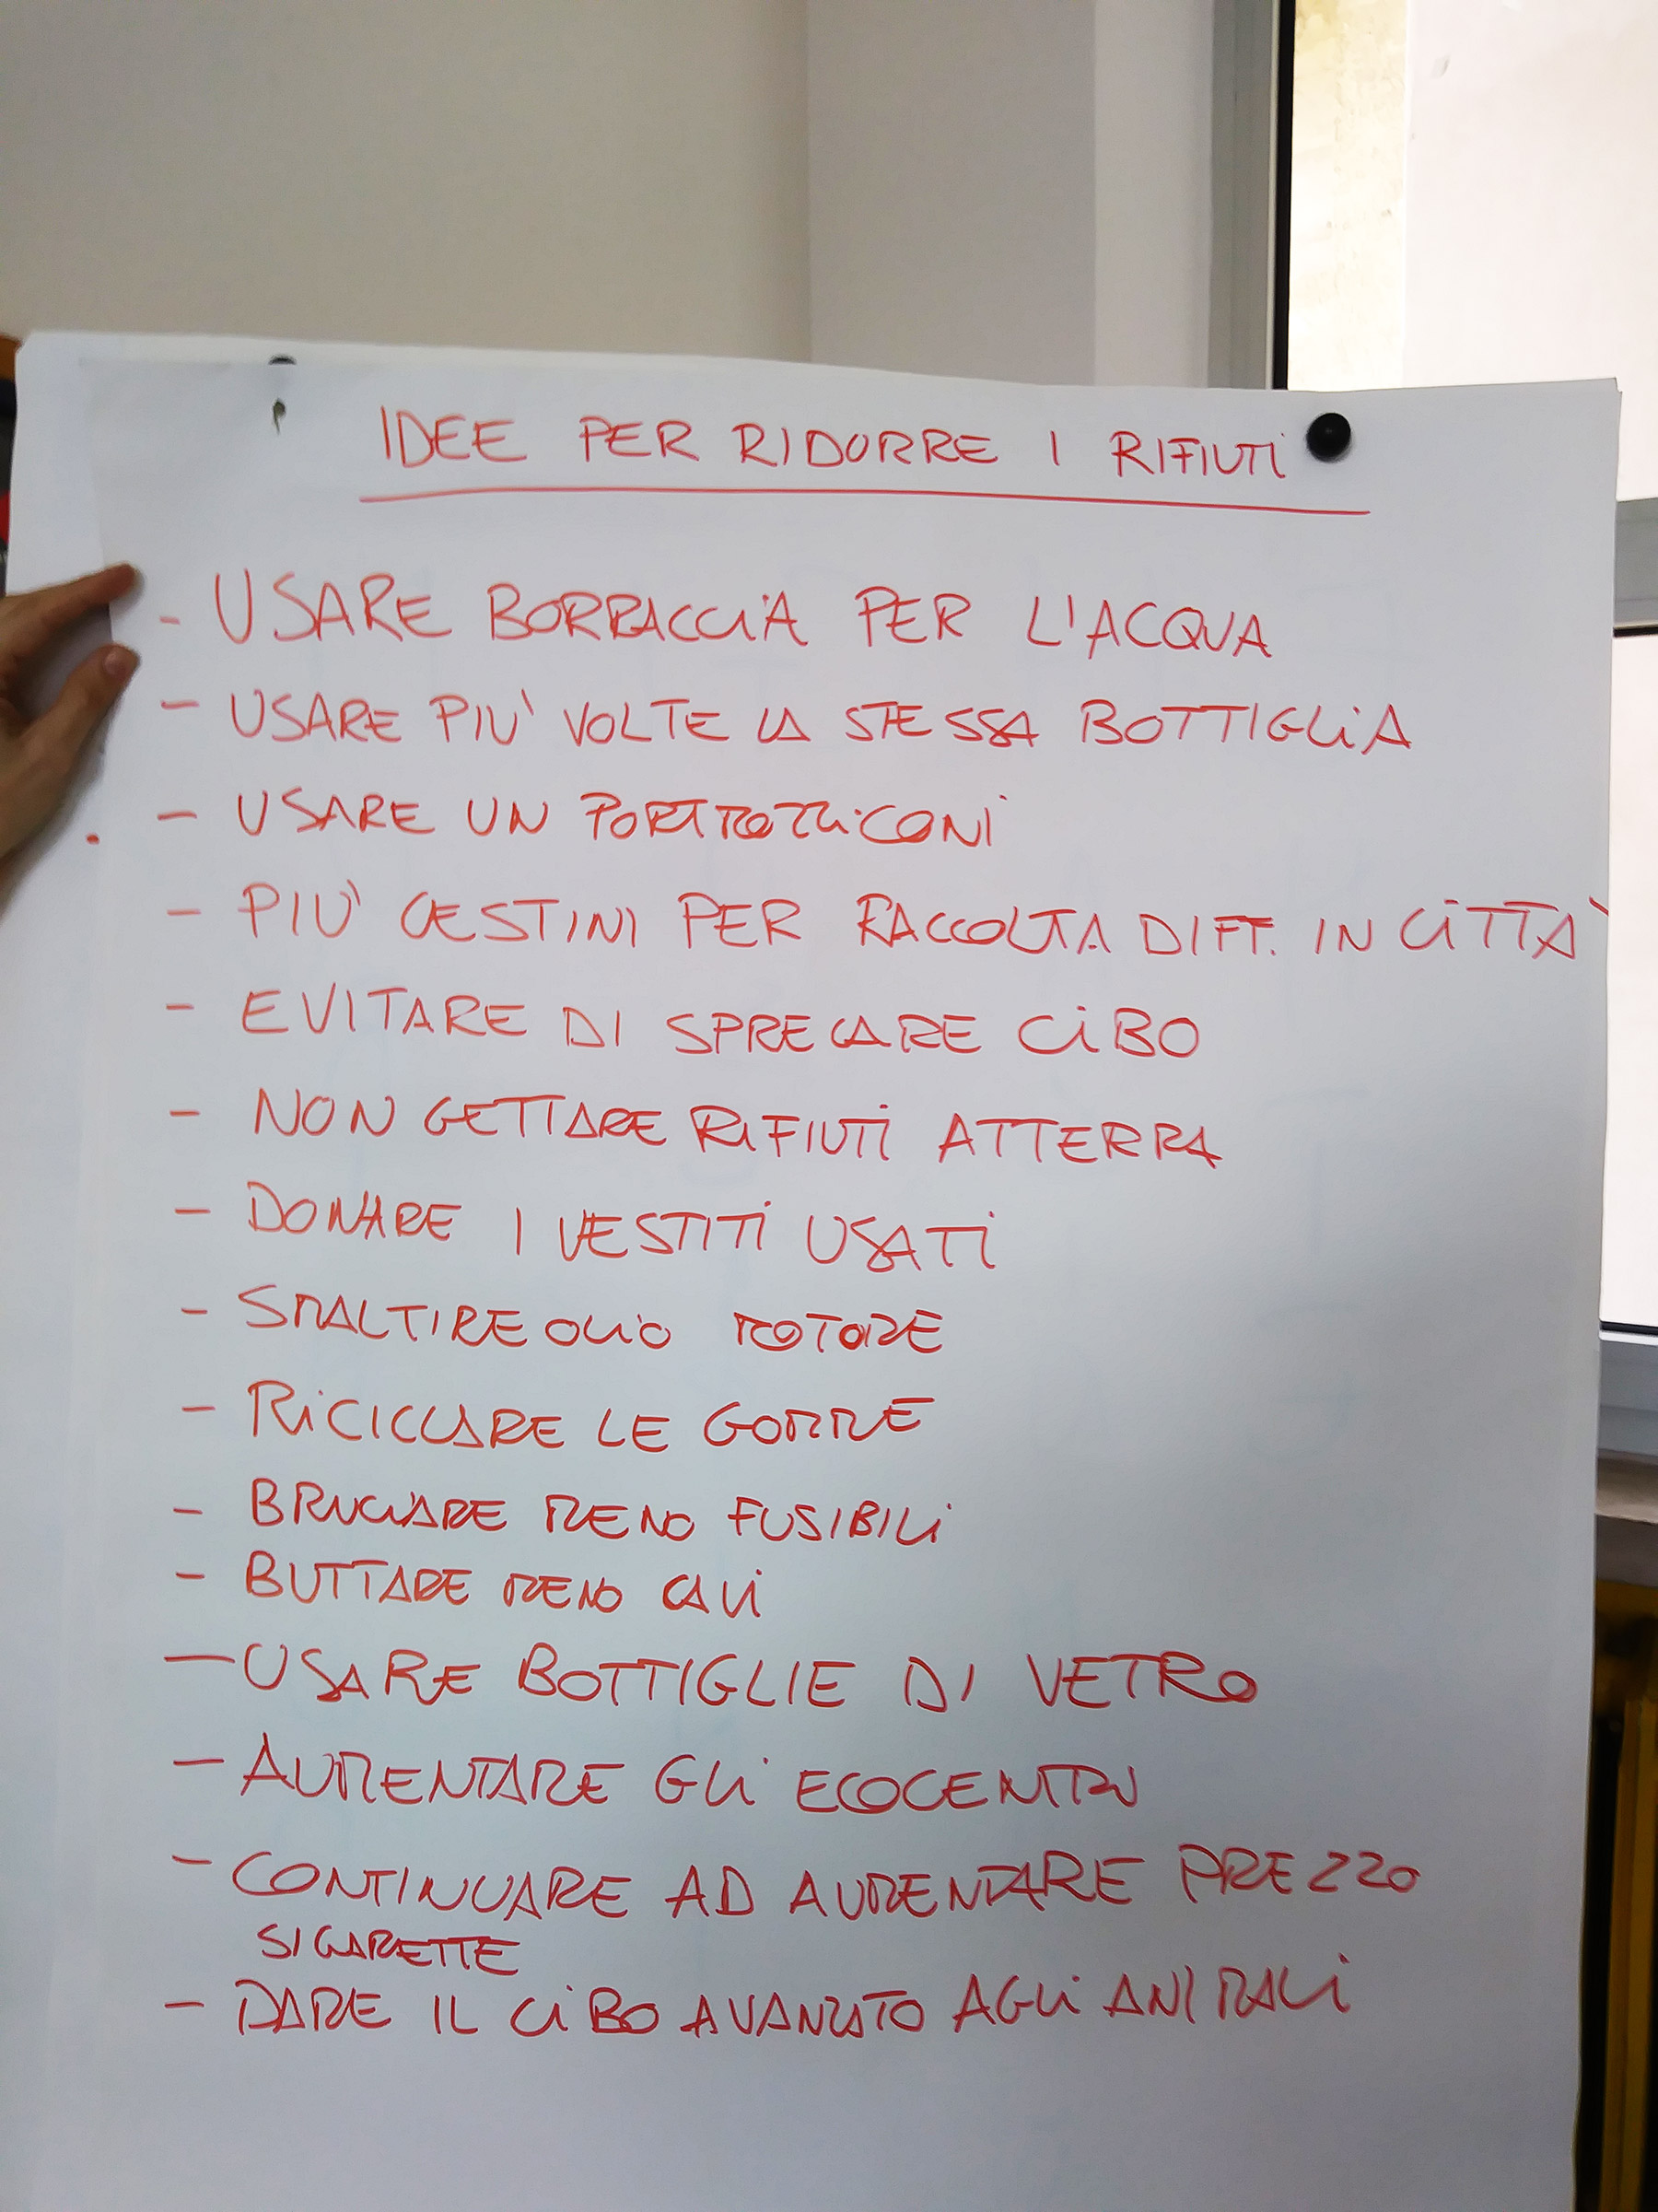 IDEE PER RIDURRE I RIFIUTI
- USARE BORRACCIA PER L'ACQUA
- USARE PIU' VOLTE LA STESSA BOTTIGLIA
- USARE UN PORTMOZZICONI
- PIU' CESTINI PER RACCOLTA DIFF. IN CITTA'
- EVITARE DI SPRECARE CIBO
- NON GETTARE RIFIUTI ATTERRA
- DONARE I VESTITI USATI
- SMALTIRE OLIO MOTORE
- RICICLARE LE GOMME
- BRUCIARE MENO FUSIBILI
- BUTTARE MENO CAVI
- USARE BOTTIGLIE DI VETRO
- AUMENTARE GLI ECOCENTRI
- CONTINUARE AD AUMENTARE PREZZO
SIGARETTE
- DARE IL CIBO AVANZATO AGLI ANIMALI